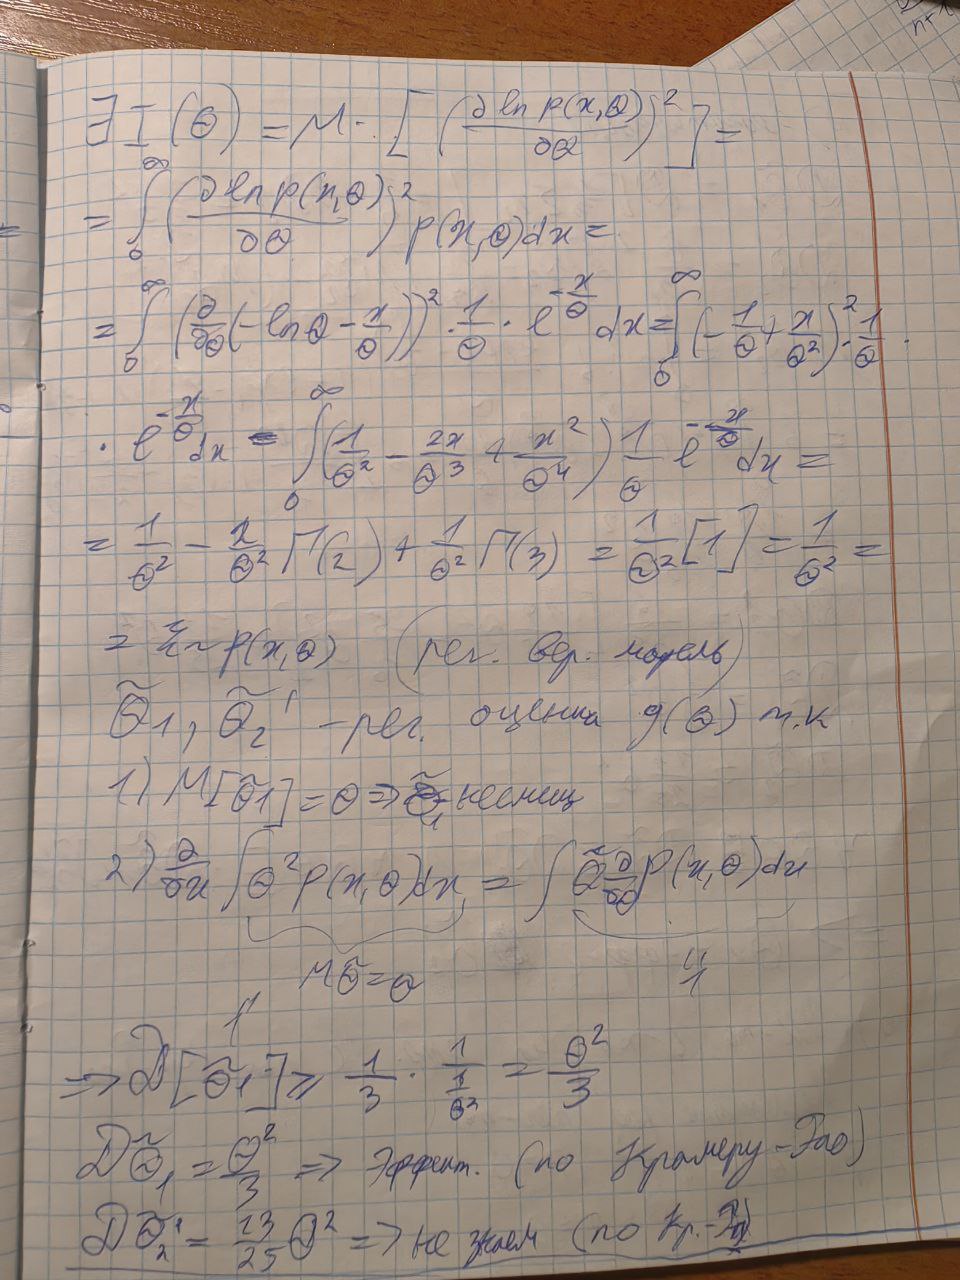 ∃ I(θ) = M · [(∂ ln p(x,θ)/∂θ)²] =
= ∫₀^∞ (∂ ln p(x,θ)/∂θ)² p(x,θ)dx =
= ∫₀^∞ (∂/∂θ(-lnθ - x/θ))² · 1/θ · e^(-x/θ) dx = ∫₀^∞ (-1/θ + x/θ²)² · 1/θ ·
· e^(-x/θ) dx = ∫₀^∞ (1/θ² - 2x/θ³ + x²/θ⁴) 1/θ e^(-x/θ) dx =
= 1/θ² - 2/θ² Γ(2) + 1/θ² Γ(3) = 1/θ² [1] = 1/θ² =
= ξ ~ p(x,θ) (рег. вер. модель)
θ̃1, θ̃₂' - рег. оценка g(θ) т.к
1) M[θ̃1] = θ => θ̃₁ несмещ
2) ∂/∂x ∫ θ² p(x,θ)dx = ∫ θ̃ ∂/∂θ p(x,θ)dx
Mθ̃ = θ
1
=> D[θ̃1] ≥ 1/3 · 1/(1/θ²) = θ²/3
Dθ̃₁ = θ²/3 => Эффект. (по Крамеру-Рао)
Dθ̃₂' = 13/25 θ² => не знаем (по Кр.-Р)